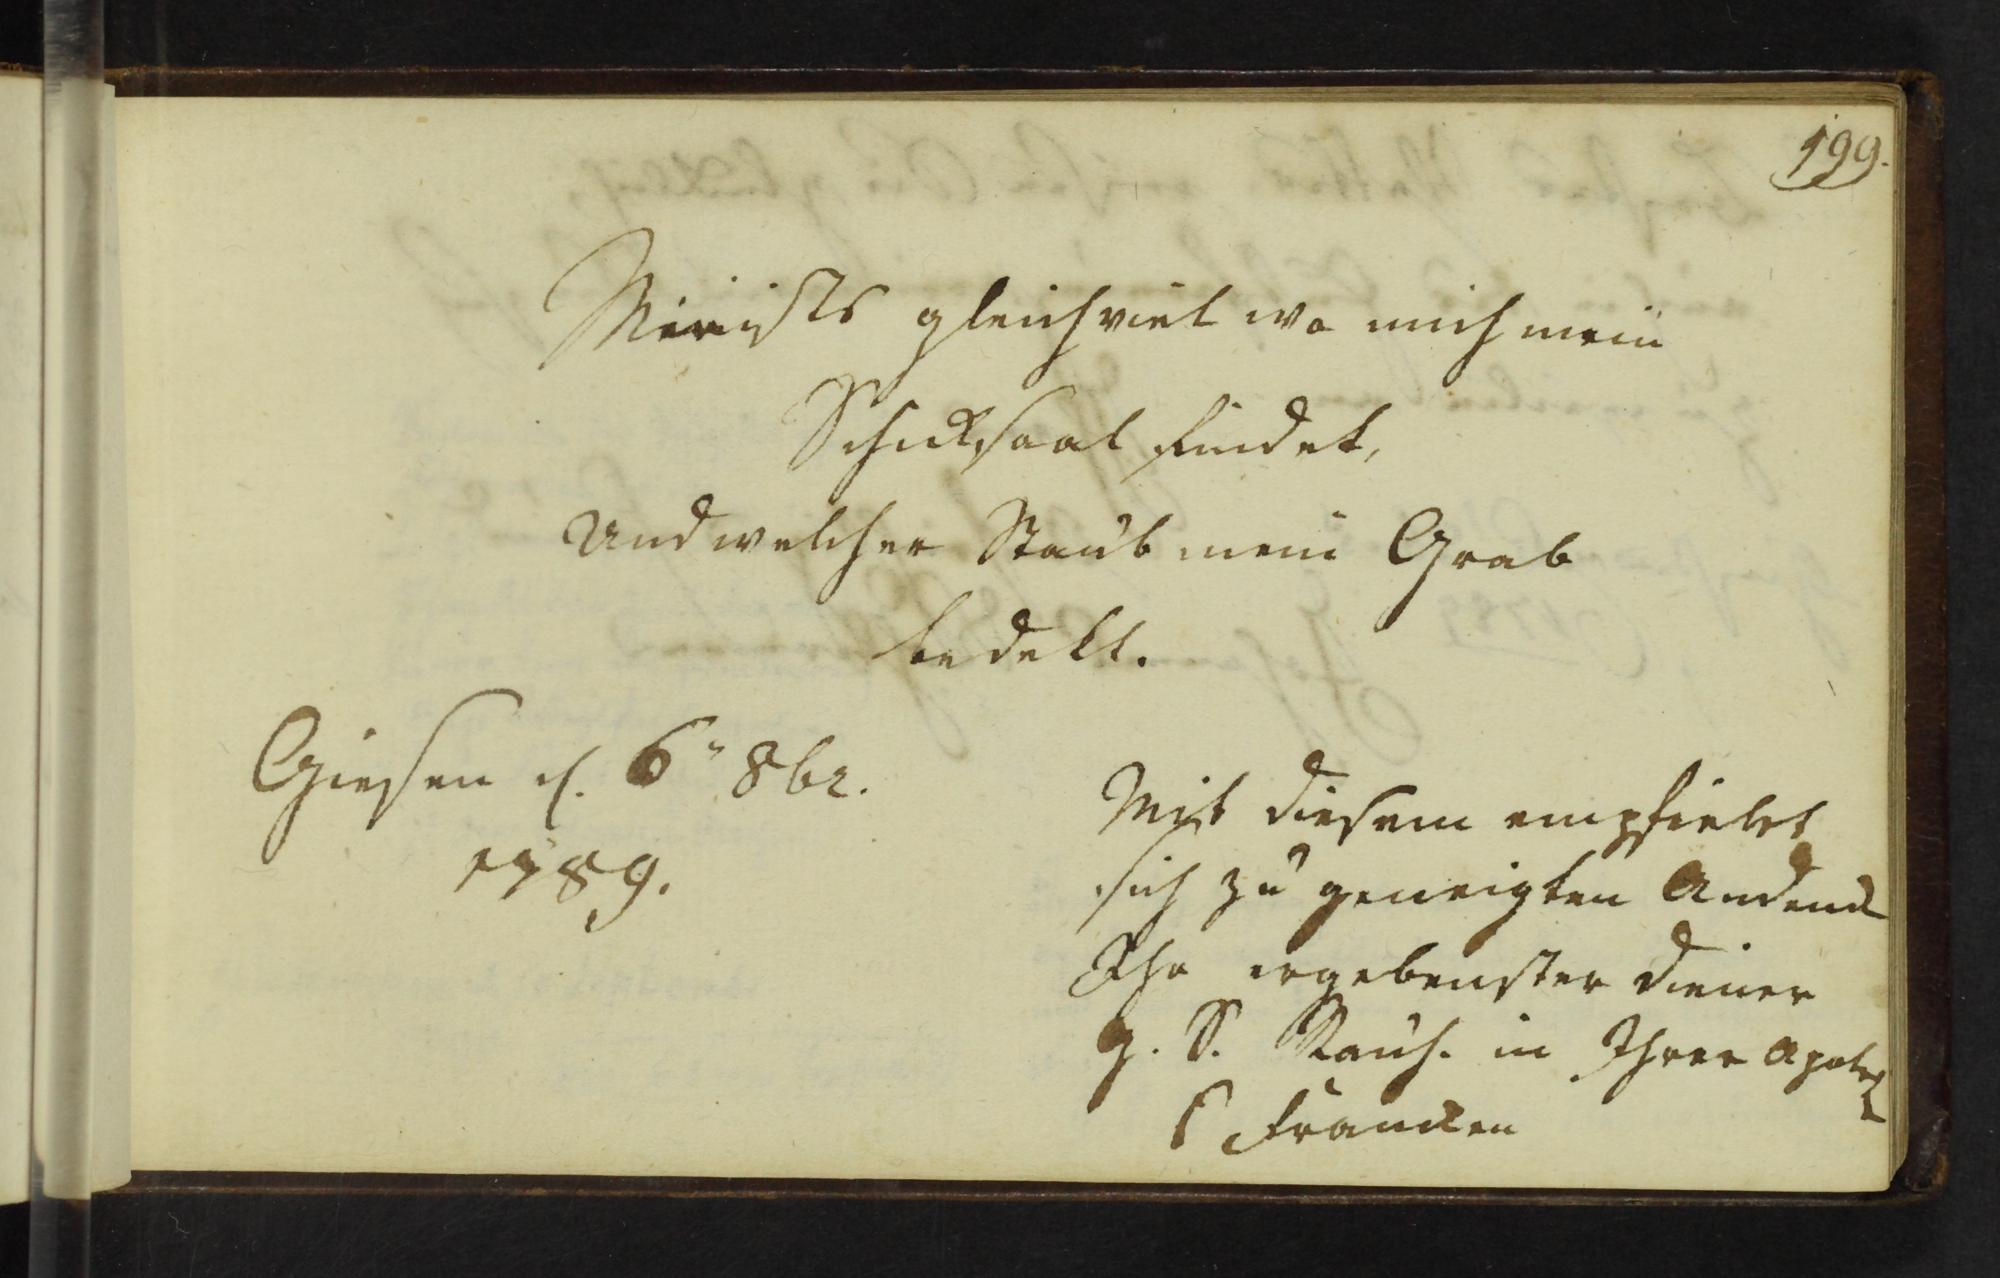 199.
Mir ists gleichviel wo mich mein
Schicksaal findet,
Und welcher Staub mein Grab
bedekt.
Giesen d. 6" 8br.
1789.
Mit diesem empfielet
sich zu geneigten Andenck
Ihr ergebenster diener
Rauh. in Ihrer Apotek
Francken